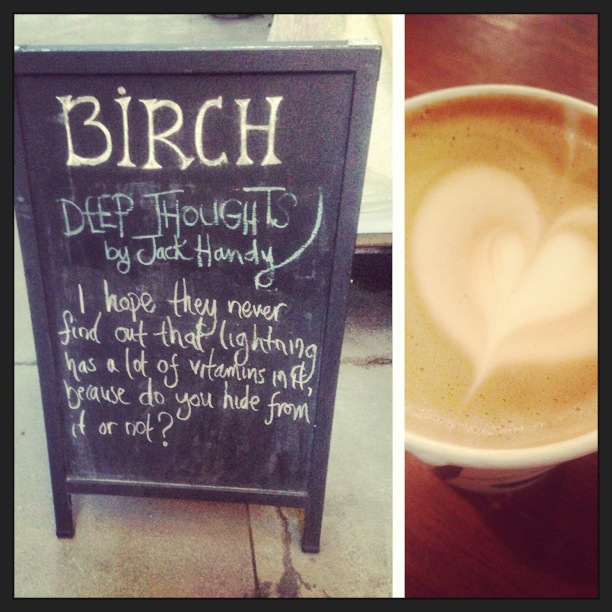 BiRCH
DEEP THOUGHTS
by Jack Handy
I hope they never
find out that lightning
has a lot of vitamins in it,
because do you hide from
it or not?